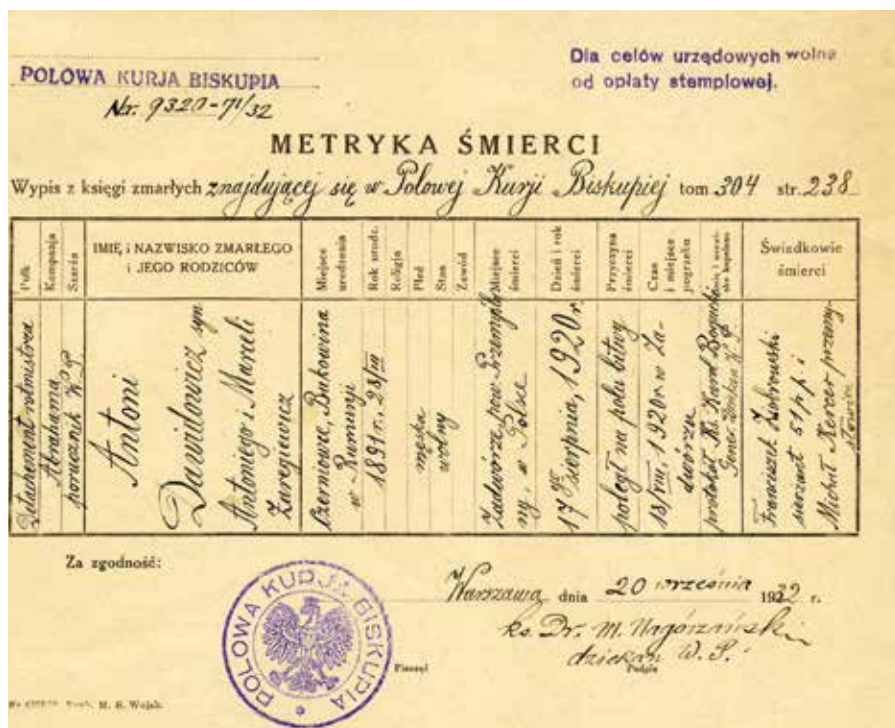 POLOWA KURJA BISKUPIA
Nr. 9320-71/32
Dla celów urzędowych wolne
od opłaty stemplowej.
METRYKA ŚMIERCI
Wypis z księgi zmarłych znajdującej się w Polowej Kurji Biskupiej tom 304 str. 238
Pułk
Kompanja
Szarża
IMIĘ i NAZWISKO ZMARŁEGO
i JEGO RODZICÓW
Miejsce
urodzenia
Rok urodz.
Religja
Płeć
Stan
Zawód
Miejsce
śmierci
Dzień i rok
śmierci
Przyczyna
śmierci
Czas
i miejsce
pogrzebu
Świadkowie
śmierci
Detachement rotmistrza
Abrahama
porucznik W.P.
Antoni
Dawidowicz syn
Antoniego i Mareli
Zaregiewicz
Czerniowce, Bukowina
w Rumunji
1891 r. 28/III
męska
wolny
Zadwórze, pow. Przemyśla-
ny, w Polsce
17go sierpnia, 1920 r.
poległ na polu bitwy
18/VIII, 1920 r. w Za-
dwórzu
protokół Ks. Karol Bogucki
Gener. Dziekan W.P.
Franciszek
sierżant 51 p.p. i
Michał Kercer przemy-
Za zgodność:
POLOWA KURJA BISKUPIA
Warszawa dnia 20 września 1932 r.
ks. Dr. M.
dziekan W.P.
Pieczęć
Podpis
M. S. Wojsk.